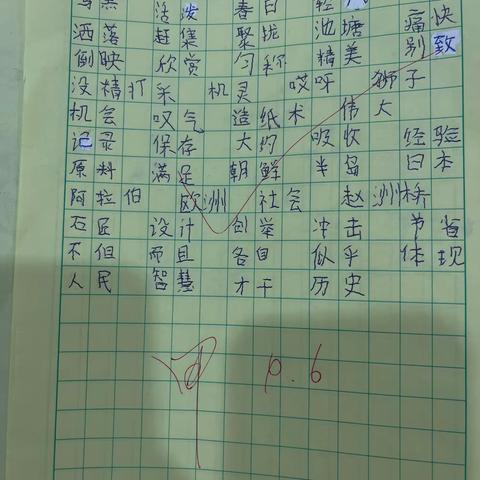 活泼 春日
洒落 赶集 聚拢 池塘 痛快
倒映 欣赏 匀称 精美 别致
没精打采 机灵 哎呀 狮子
机会 叹气 造纸术 伟大
记录 保存 大约 吸收 经验
原料 满足 朝鲜 半岛 日本
阿拉伯 欧洲 社会 赵洲桥
石匠 设计 创举 冲击 节省
不但 而且 各自 似乎 体现
人民 智慧 才干 历史
阅 10.6